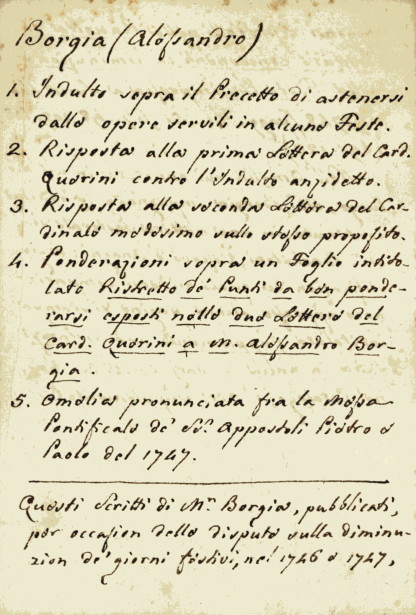 Borgia (Alessandro)
1. Indulto sopra il Precetto di astenersi
dalle opere servili in alcune Feste.
2. Risposta alla prima Lettera del Card.
Querini contro l'Indulto anzidetto.
3. Risposta alla seconda Lettera del Car-
dinale medesimo sullo stesso proposito.
4. Ponderazioni sopra un Foglio intito-
lato Ristretto de' Punti da ben ponde-
rarsi esposti nelle due Lettere del
Card. Querini a M. Alessandro Bor-
gia.
5. Omelia pronunciata fra la Messa
Pontificale de' SS. Appostoli Pietro e
Paolo del 1747.
Questi Scritti di Mr. Borgia, pubblicati,
per occasion delle dispute sulla diminu-
zion de' giorni festivi, nel 1746 e 1747,